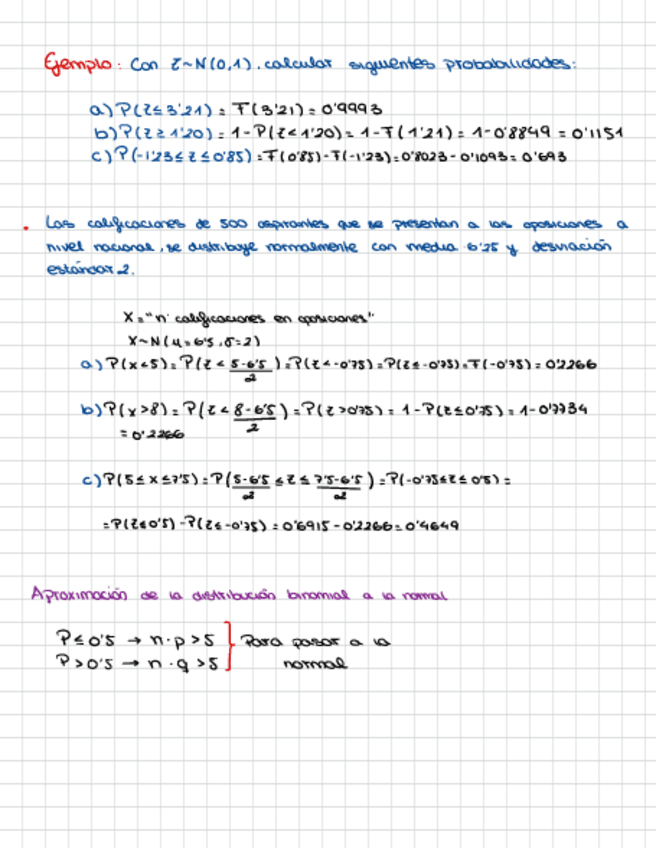 Ejemplo: Con Z~N(0,1). calcular siguientes probabilidades:
a) P(Z ≤ 3'21) = F(3'21) = 0'9993
b) P(Z ≥ 1'20) = 1-P(Z < 1'20) = 1-F(1'21) = 1-0'8849 = 0'1151
c) P(-1'23 ≤ Z ≤ 0'85) = F(0'85) - F(-1'23) = 0'8023 - 0'1093 = 0'693
. Las calificaciones de 500 aspirantes que se presentan a las oposiciones a
nivel nacional, se distribuye normalmente con media 6'25 y desviación
estándar 2.
X = "nº calificaciones en oposiciones"
X~N(μ = 6'5, σ = 2)
a) P(x < 5) = P(Z < (5-6'5)/2) = P(Z < -0'75) = P(Z ≤ -0'75) = F(-0'75) = 0'2266
b) P(x > 8) = P(Z < (8-6'5)/2) = P(Z > 0'75) = 1-P(Z ≤ 0'75) = 1-0'7734
= 0'2266
c) P(5 ≤ x ≤ 7'5) = P((5-6'5)/2 ≤ Z ≤ (7'5-6'5)/2) = P(-0'75 ≤ Z ≤ 0'5) =
= P(Z ≤ 0'5) - P(Z ≤ -0'75) = 0'6915 - 0'2266 = 0'4649
Aproximación de la distribución binomial a la normal
P ≤ 0'5 → n·p > 5 } Para pasar a la
P > 0'5 → n·q > 5 } normal